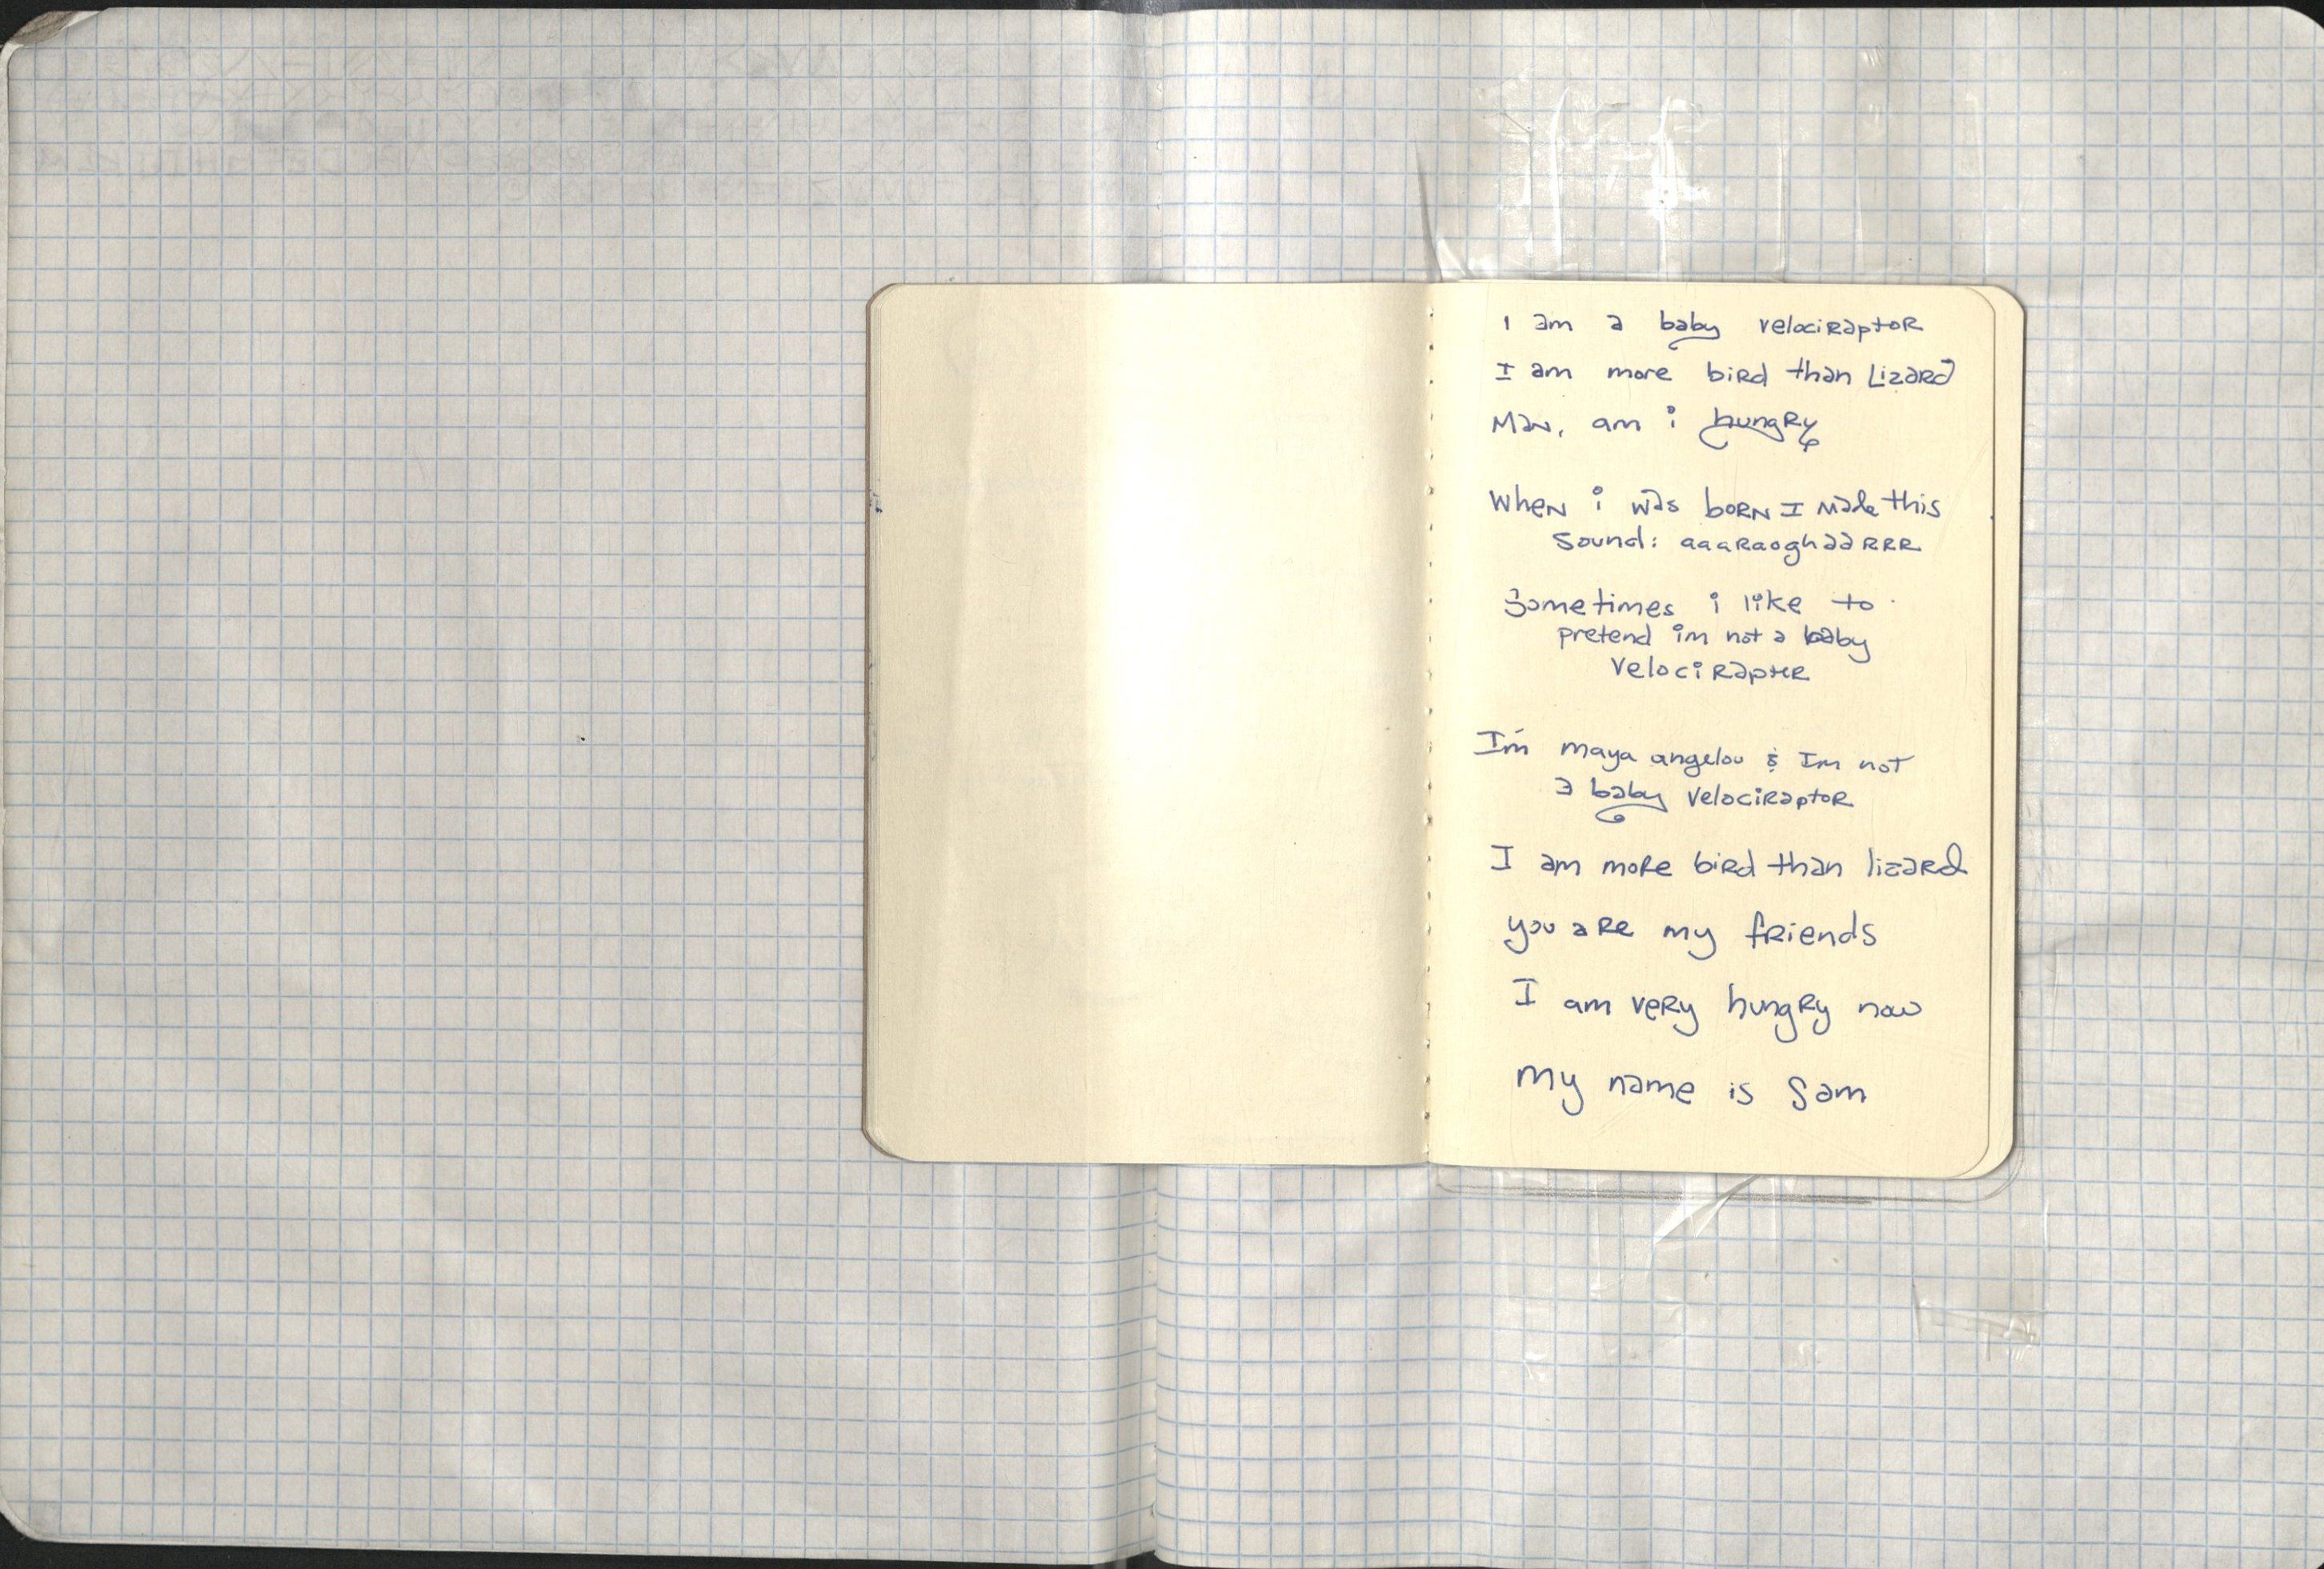 I am a baby velociraptor
I am more bird than Lizard
Man, am i hungry
When i was born I made this
Sound: aaaraoghaarrr
Sometimes i like to
pretend im not a baby
velociraptor
I'm maya angelou & Im not
a baby velociraptor
I am more bird than lizard
you are my friends
I am very hungry now
My name is Sam